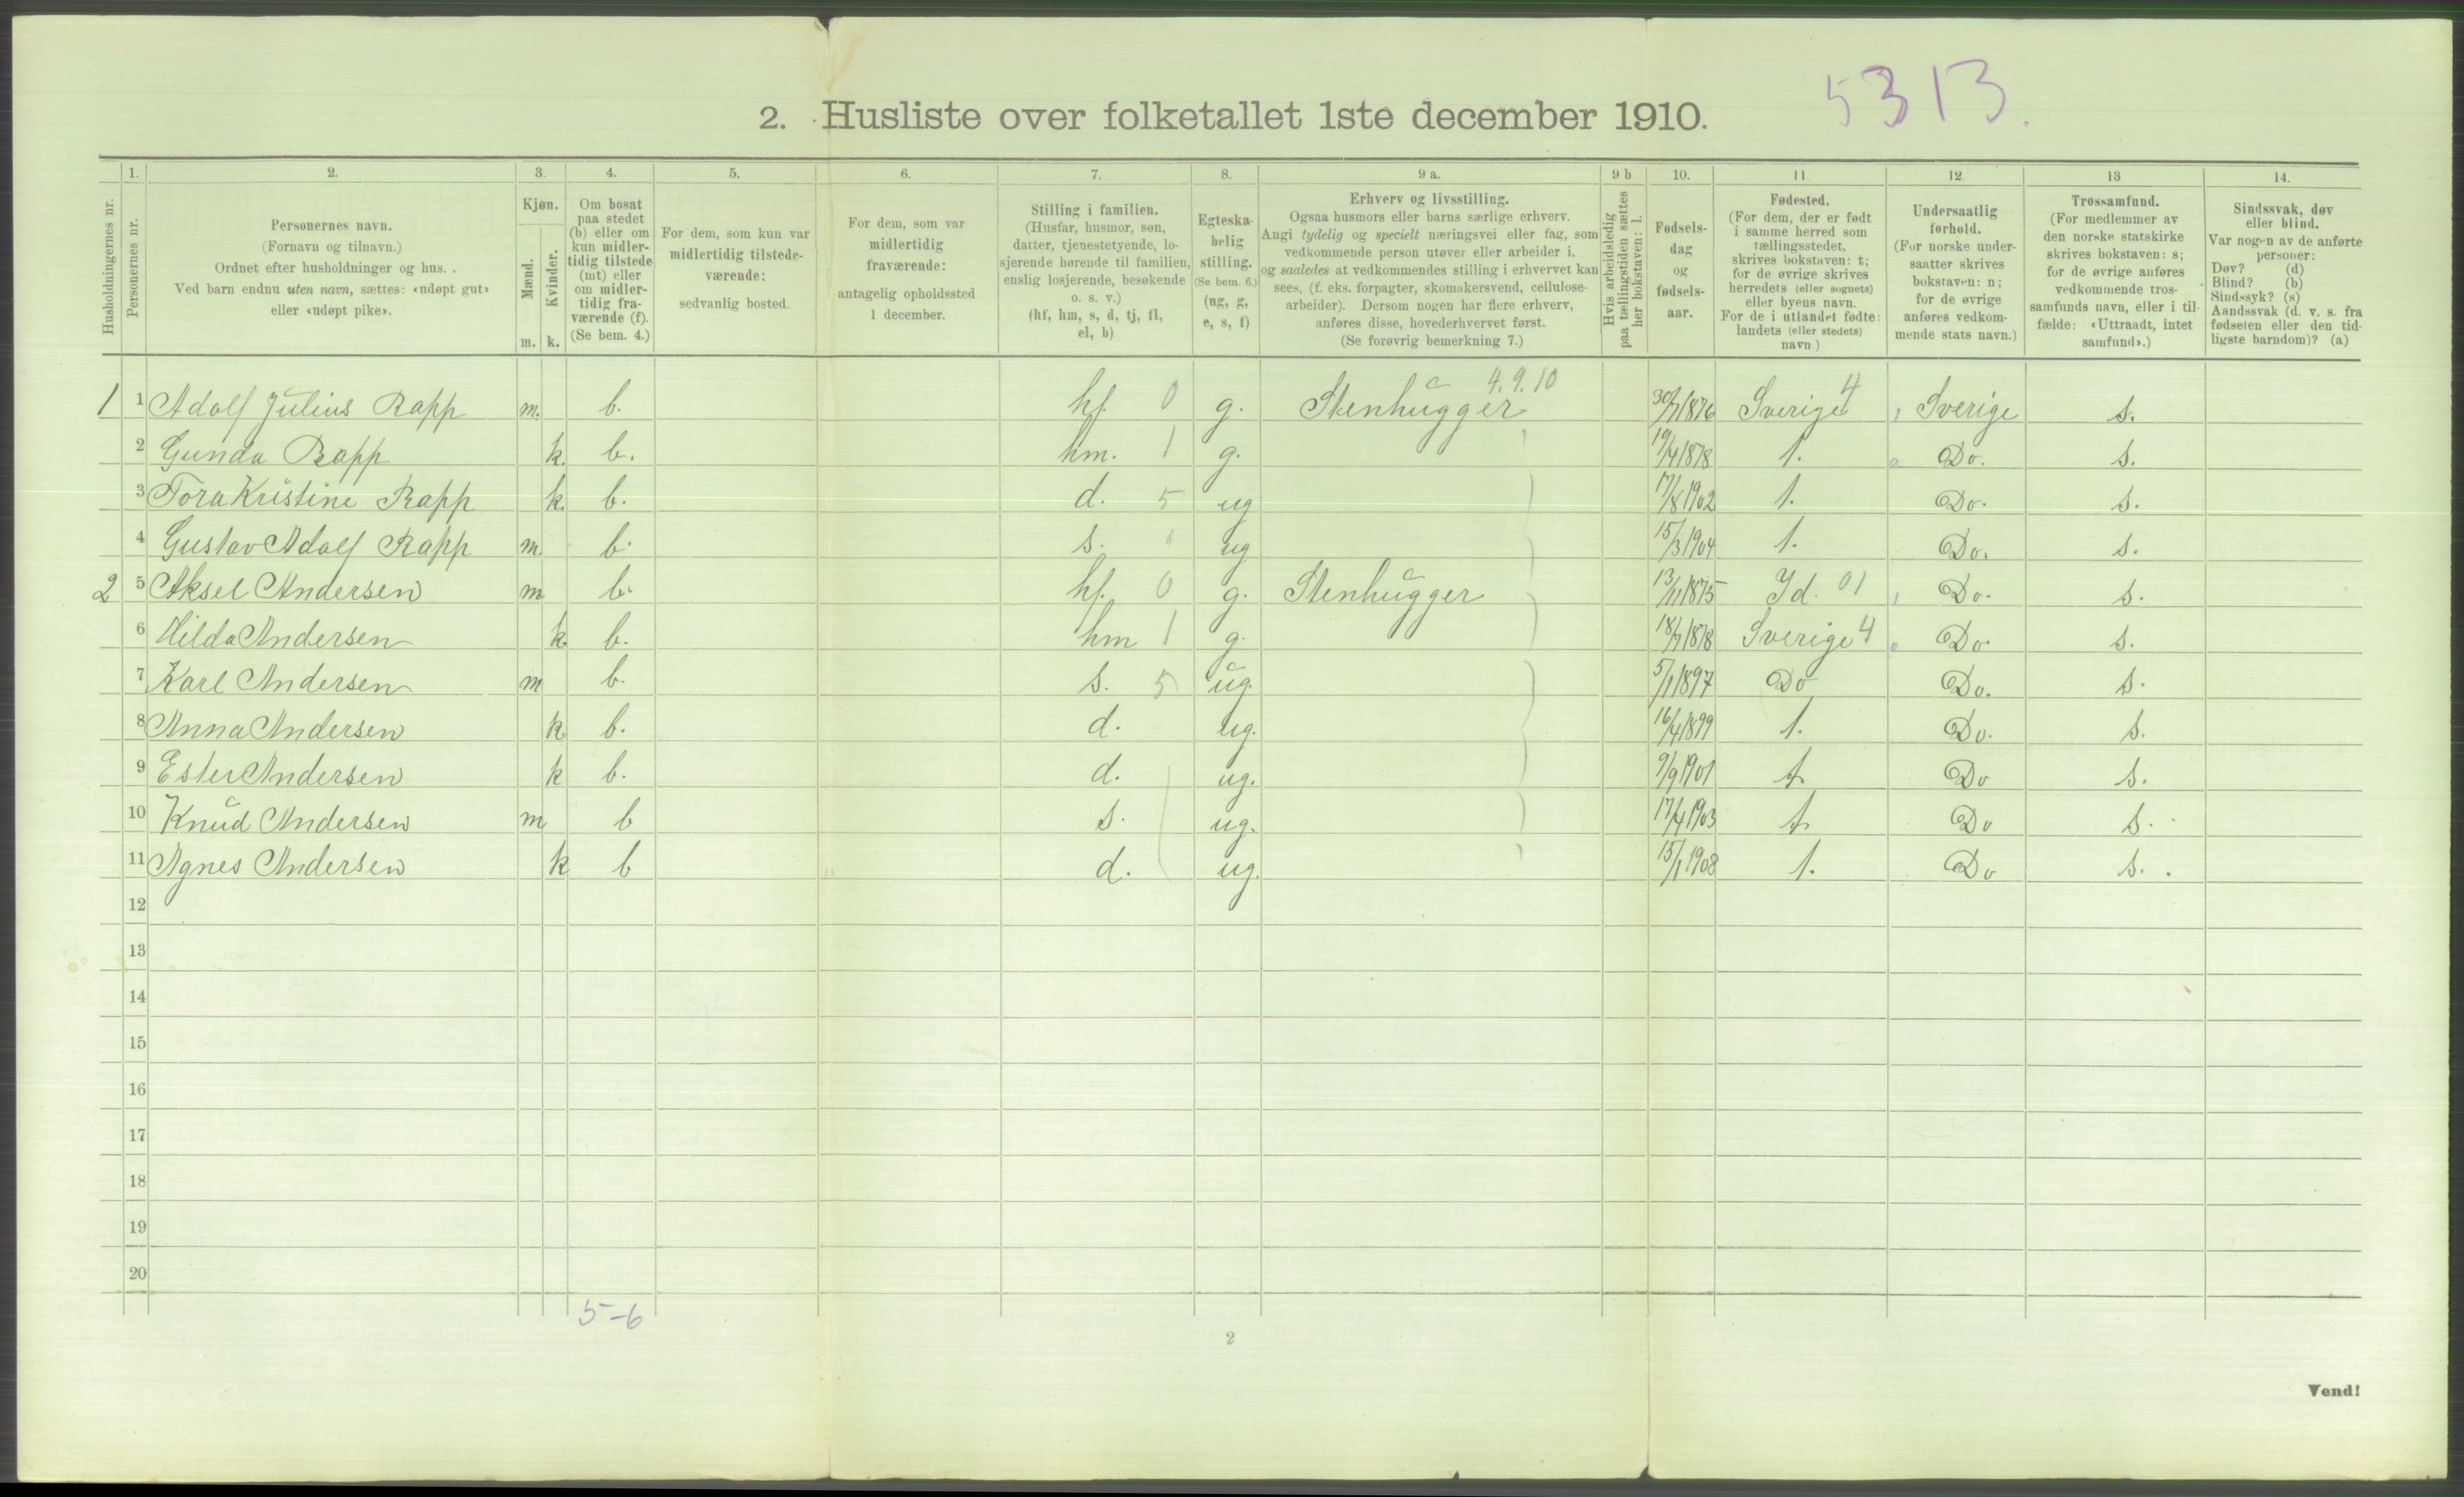 5313.
2. Husliste over folketallet 1ste december 1910.
Husholdningernes nr.
1.
Personernes nr.
2.
Personernes navn.
(Fornavn og tilnavn.)
Ordnet efter husholdninger og hus.
Ved barn endnu uten navn, sættes: «udøpt gut»
eller «udøpt pike».
3.
Kjøn.
Mænd.
Kvinder.
m. k.
4.
Om bosat
paa stedet
(b) eller om
kun midler-
tidig tilstede
(mt) eller
om midler-
tidig fra-
værende (f).
(Se bem. 4.)
5.
For dem, som kun var
midlertidig tilstede-
værende:
sedvanlig bosted.
6.
For dem, som var
midlertidig
fraværende:
antagelig opholdssted
1 december.
7.
Stilling i familien.
(Husfar, husmor, søn,
datter, tjenestetyende, lo-
sjerende hørende til familien,
enslig losjerende, besøkende
o. s. v.)
(hf, hm, s, d, tj, fl,
el, b)
8.
Egteska-
belig
stilling.
(Se bem. 6.)
(ug, g,
e, s, f)
9 a.
Erhverv og livsstilling.
Ogsaa husmors eller barns særlige erhverv.
Angi tydelig og specielt næringsvei eller fag, som
vedkommende person utøver eller arbeider i,
og saaledes at vedkommendes stilling i erhvervet kan
sees, (f. eks. forpagter, skomakersvend, cellulose-
arbeider). Dersom nogen har flere erhverv,
anføres disse, hovederhvervet først.
(Se forøvrig bemerkning 7.)
9 b
Hvis arbeidsledig
paa tællingstiden sættes
her bokstaven: l.
10.
Fødsels-
dag
og
fødsels-
aar.
11
Fødested.
(For dem, der er født
i samme herred som
tællingsstedet,
skrives bokstaven: t;
for de øvrige skrives
herredets (eller sognets)
eller byens navn.
For de i utlandet fødte:
landets (eller stedets)
navn)
12.
Undersaatlig
forhold.
(For norske under-
saatter skrives
bokstaven: n;
for de øvrige
anføres vedkom-
mende stats navn.)
13
Trossamfund.
(For medlemmer av
den norske statskirke
skrives bokstaven: s;
for de øvrige anføres
vedkommende tros-
samfunds navn, eller i til-
fælde: «Uttraadt, intet
samfund».)
14.
Sindssvak, døv
eller blind.
Var nogen av de anførte
personer:
Døv? (d)
Blind? (b)
Sindssyk? (s)
Aandssvak (d. v. s. fra
fødselen eller den tid-
ligste barndom)? (a)
4.9.10
1 1 Adolf Julius Rapp m. b. hf. 0 g. Stenhugger 30/7 1876 Sverige 4 Sverige s.
2 Gunda Rapp k. b. hm. 1 g. 19/4 1878 t. Do. s.
3 Tora Kristine Rapp k. b. d. 5 ug 17/8 1902 t. Do. s.
4 Gustav Adolf Rapp m. b. s. ug 15/3 1904 t. Do. s.
2 5 Aksel Andersen m b. hf. 0 g. Stenhugger 13/11 1875 Id. 01 Do. s.
6 Hilda Andersen k. b. hm 1 g. 18/7 1878 Sverige 4 Do. s.
7 Karl Andersen m b. s. 5 ug. 5/1 1897 Do Do. s.
8 Anna Andersen k b. d. ug. 16/4 1899 t. Do. s.
9 Ester Andersen k b. d. ug. 9/9 1901 t. Do s.
10 Knud Andersen m b s. ug. 17/4 1903 t. Do s.
11 Agnes Andersen k b d. ug. 15/1 1908 t. Do s.
12
13
14
15
16
17
18
19
20
5-6
2
Vend!